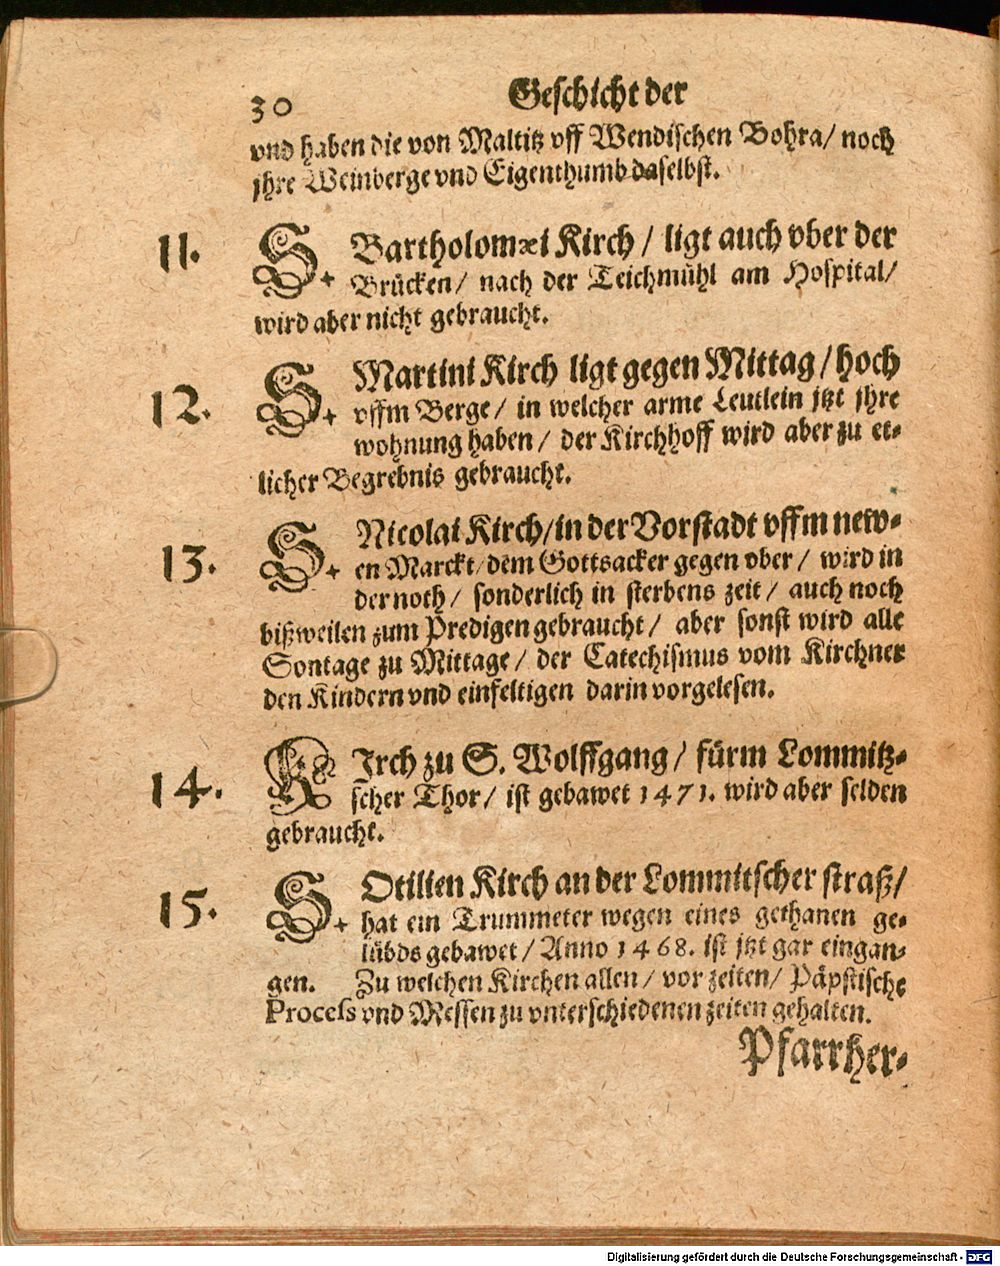 30 Geschicht der
vnd haben die von Maltitz vff Wendischen Bohra/ noch
jhre Weinberge vnd Eigenthumb daselbst.
11. S. Bartholomæi Kirch / ligt auch vber der
Brücken/ nach der Teichmühl am Hospital/
wird aber nicht gebraucht.
12. S. Martini Kirch ligt gegen Mittag/ hoch
vffm Berge/ in welcher arme Leutlein jtzt jhre
wohnung haben/ der Kirchhoff wird aber zu et-
licher Begrebnis gebraucht.
13. S. Nicolai Kirch/in der Vorstadt vffm new-
en Marckt/dem Gottsacker gegen vber/ wird in
der noth/ sonderlich in sterbens zeit/ auch noch
bißweilen zum Predigen gebraucht/ aber sonst wird alle
Sontage zu Mittage/ der Catechismus vom Kirchner
den Kindern vnd einfeltigen darin vorgelesen.
14. KIrch zu S. Wolffgang/ fürm Lommitz-
scher Thor/ ist gebawet 1471. wird aber selden
gebraucht.
15. S. Otilien Kirch an der Lommitscher straß/
hat ein Trummeter wegen eines gethanen ge-
lübds gebawet/ Anno 1468. ist jtzt gar eingan-
gen. Zu welchen Kirchen allen/ vor zeiten/ Päpstische
Process vnd Messen zu vnterschiedenen zeiten gehalten.
Pfarrher-
Digitalisierung gefördert durch die Deutsche Forschungsgemeinschaft - DFG